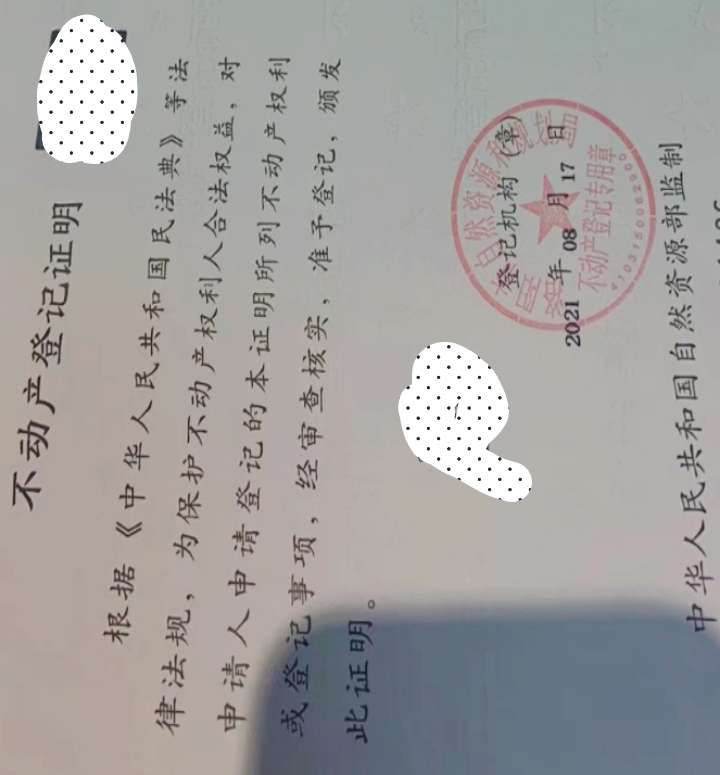 不动产登记证明
根据《中华人民共和国民法典》等法
律法规，为保护不动产权利人合法权益，对
申请人申请登记的本证明所列不动产权利
或登记事项，经审查核实，准予登记，颁发
此证明。
登记机构（章）
2021 年 08 月 17 日
自然资源
不动产登记专用章
中华人民共和国自然资源部监制